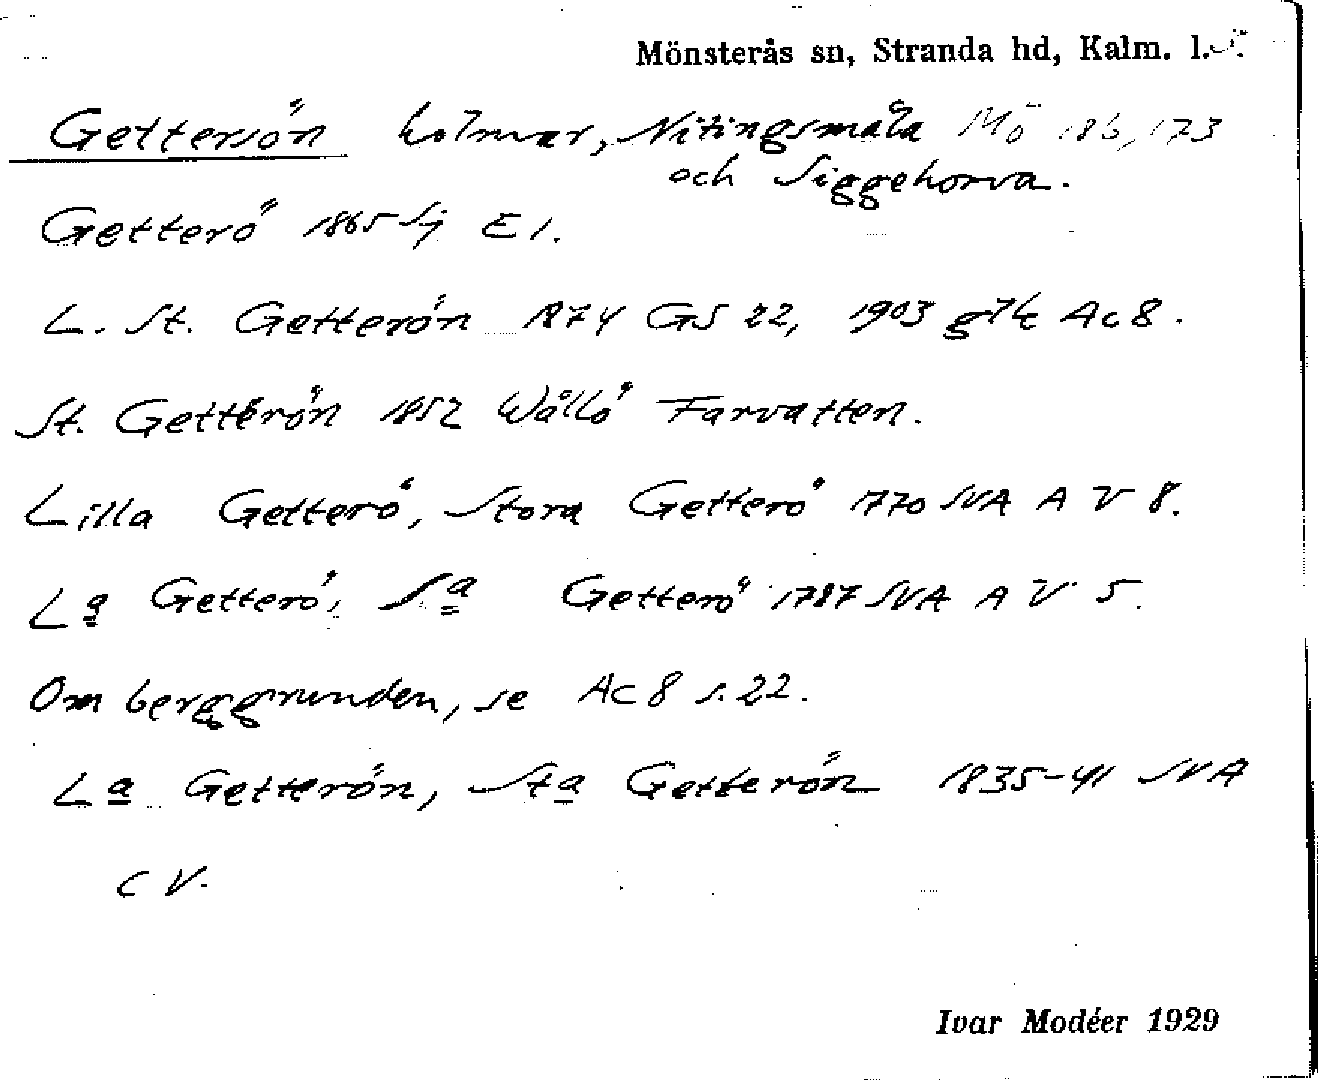 Mönsterås sn, Stranda hd, Kalm. l.
Getterön holmar, Nitingsmåla Mö 186, 173
och Siggehorva.
Getterö 1865 Sj E 1.
L. St. Getterön 1874 GS 22, 1903 Ac 8.
St. Getterön 1852 Wållö Farvatten.
Lilla Getterö, Stora Getterö 1770 SVA A V 8.
La Getterö, Sa Getterö 1787 SVA A V 5.
Om berggrunden, se Ac 8 s. 22.
La Getterön, Sta Getterön 1835-41 SVA
C V.
Ivar Modéer 1929